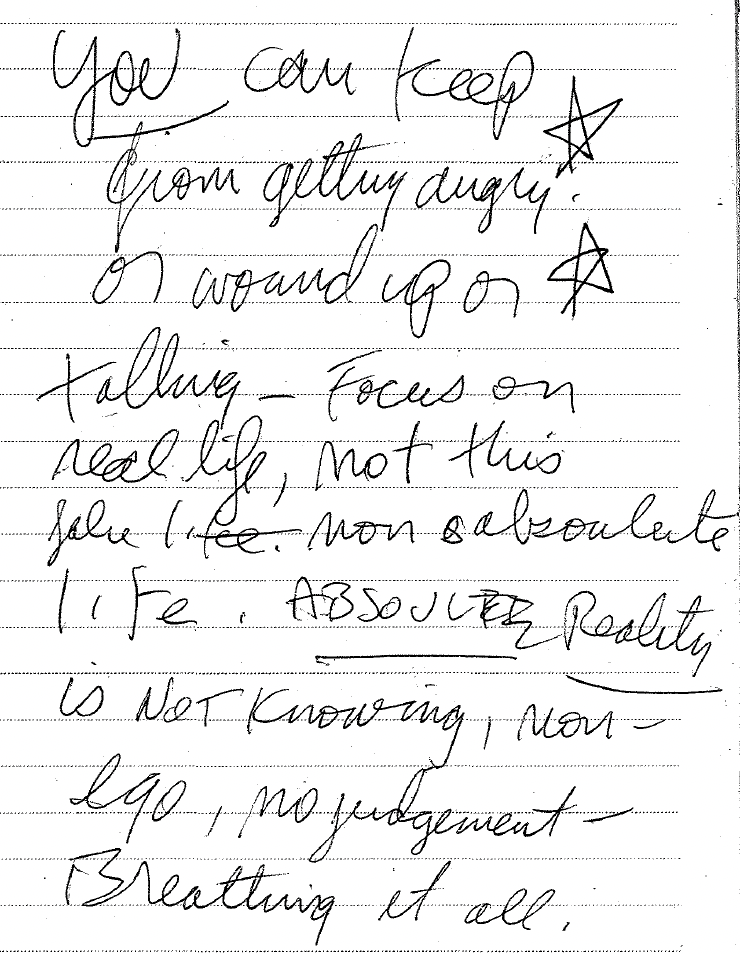 You can keep
from getting angry.
or wound up or
talking - Focus on
real life, not this
fake life. non absoulute
life. ABSOULTE Reality
is Not Knowing, non-
ego, no judgement -
Breathing it all.